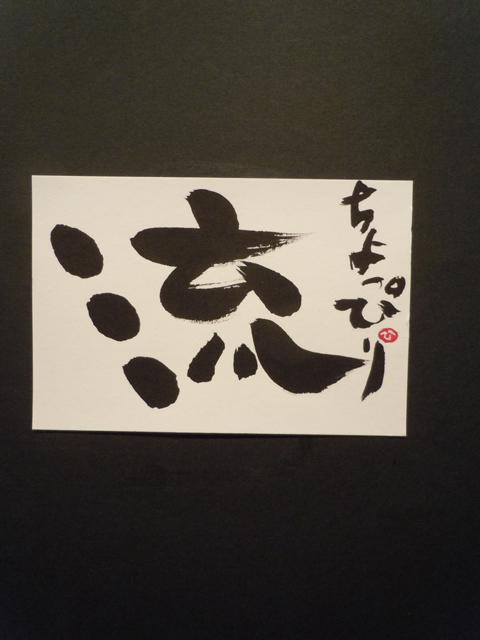 ちょっぴり
流